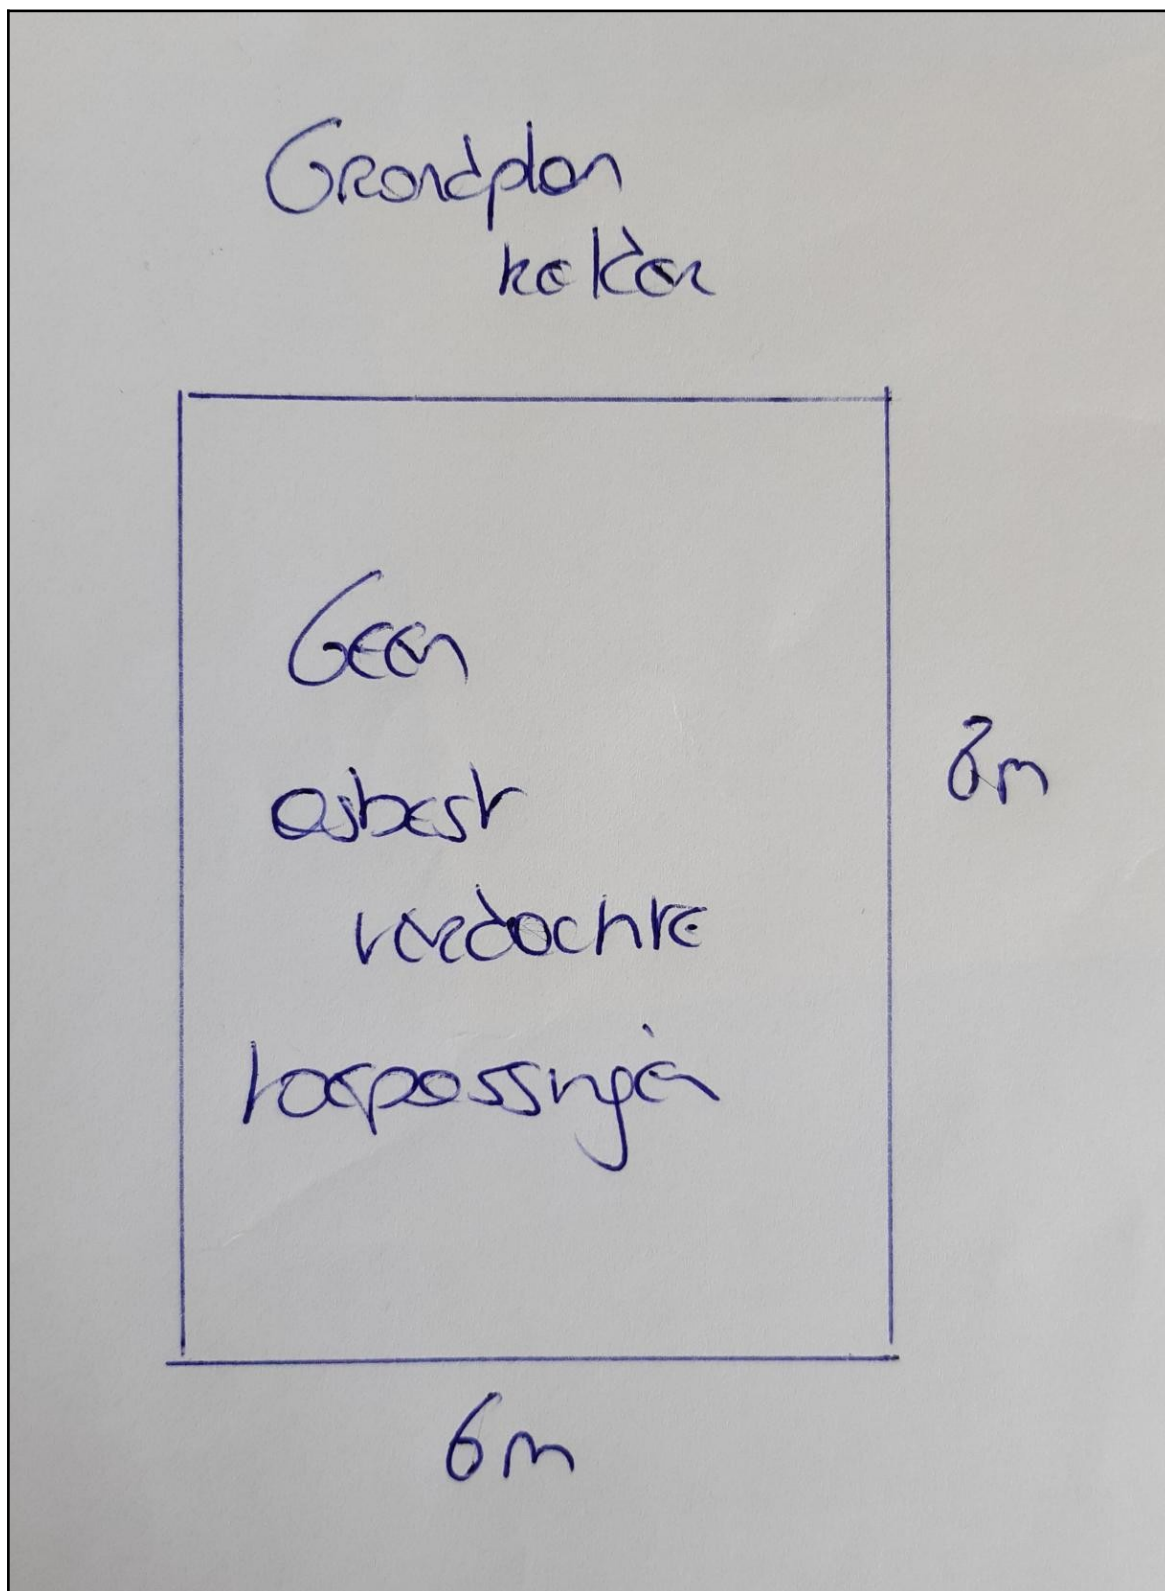 Grondplan
kelder
Geen
asbest
8m
verdachte
toepassingen
6m